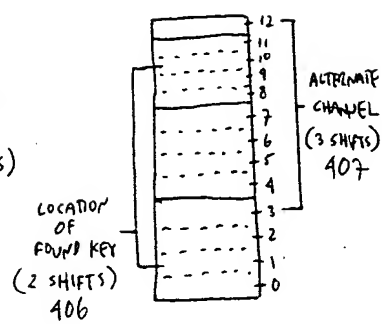 12
11
10
9
8
7
6
5
4
3
2
1
0
ALTERNATE
CHANNEL
(3 SHIFTS)
407
S)
LOCATION
OF
FOUND KEY
(2 SHIFTS)
406